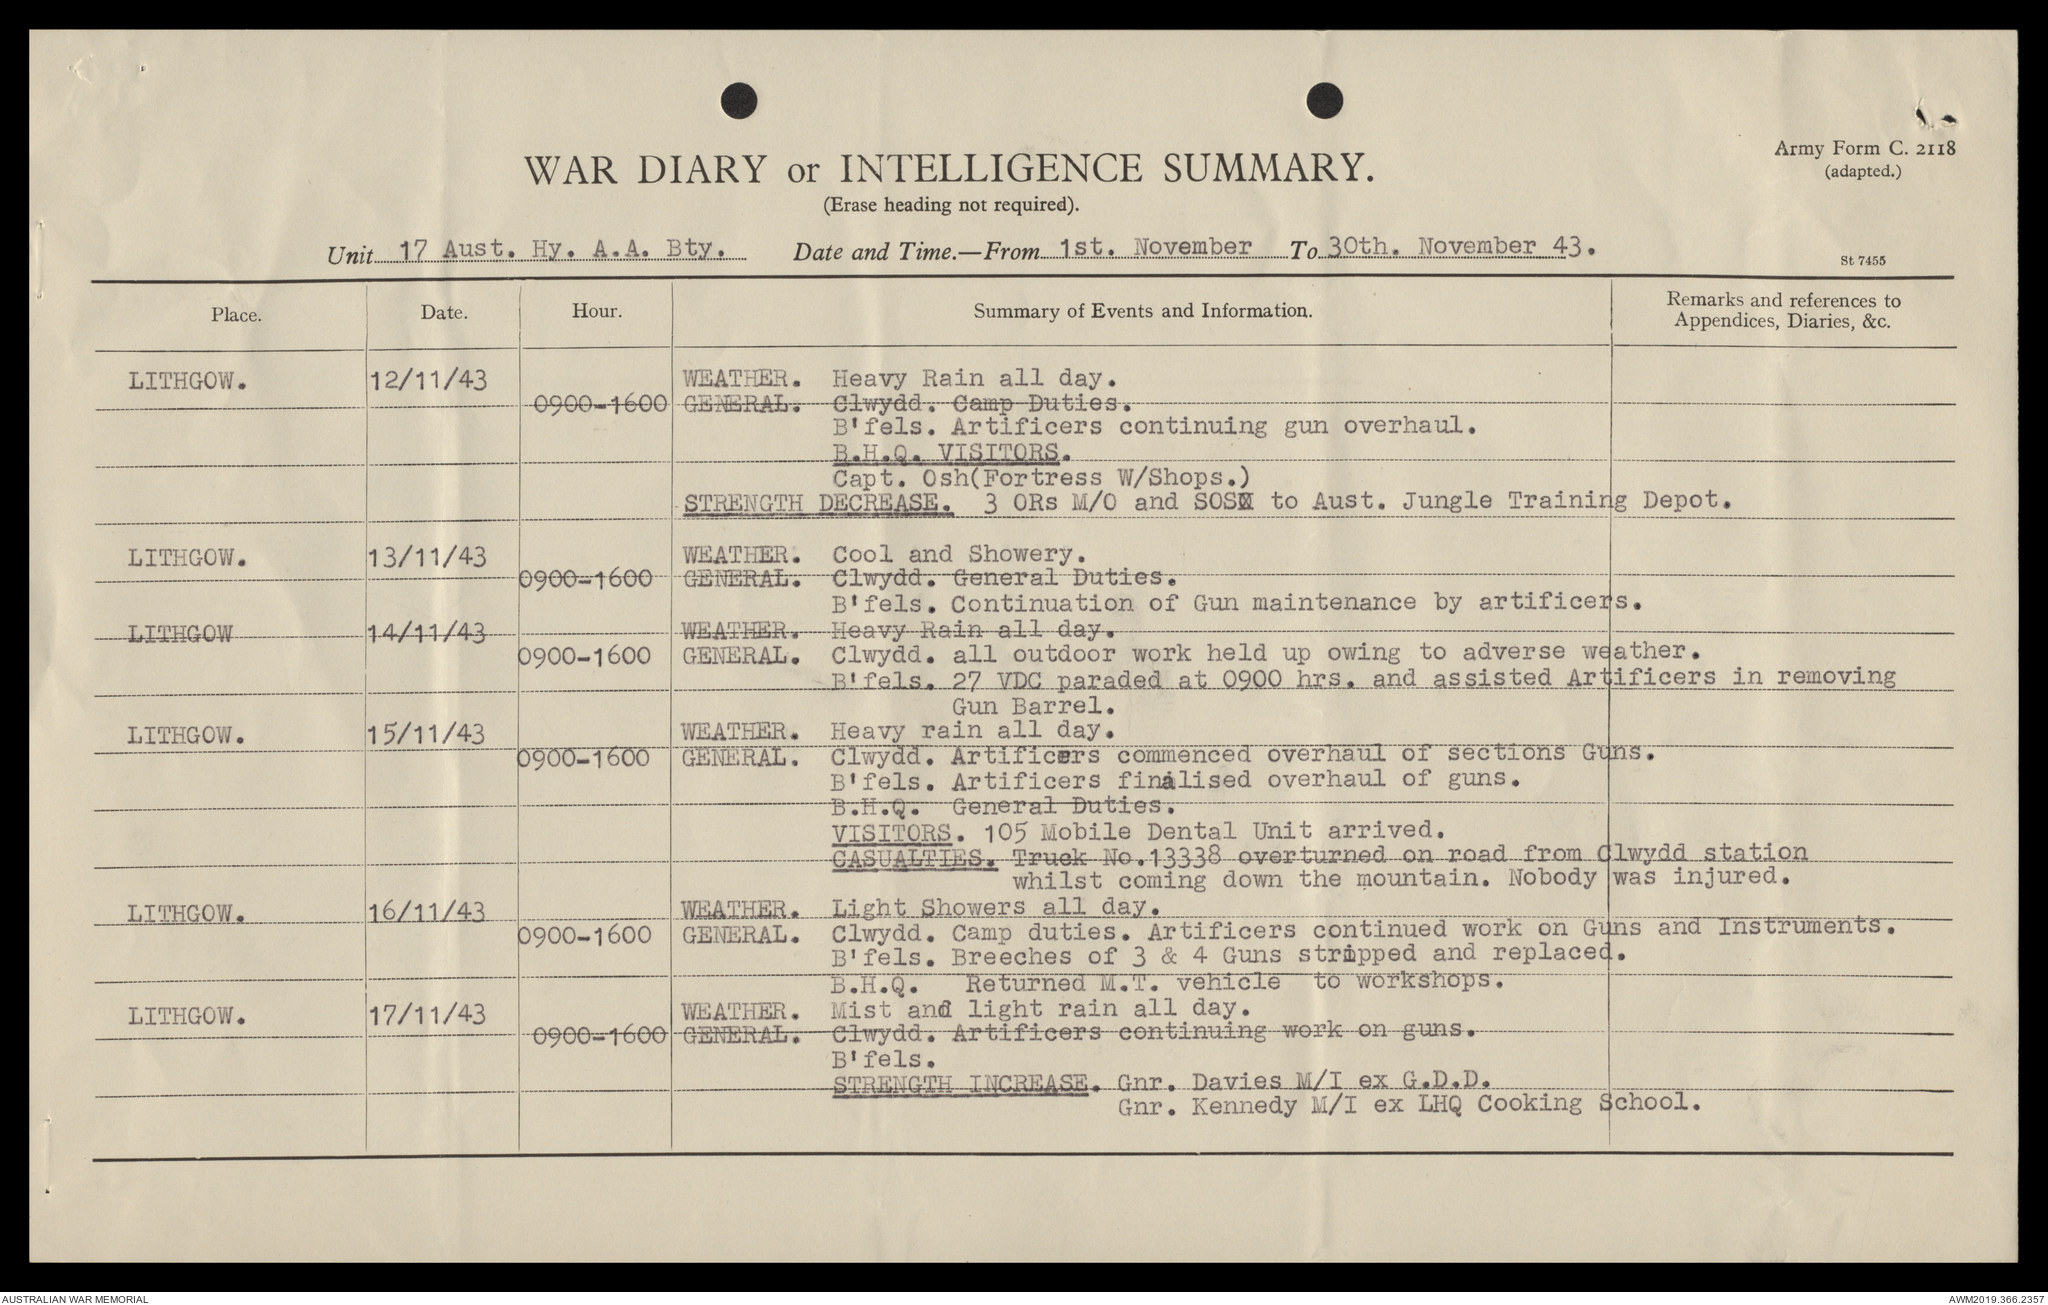 Army Form C. 2118
(adapted.)
WAR DIARY or INTELLIGENCE SUMMARY.
(Erase heading not required).
Unit 17 Aust. Hy. A.A. Bty. Date and Time.—From 1st. November To 30th. November 43.
St 7455
Place. Date. Hour. Summary of Events and Information. Remarks and references to
Appendices, Diaries, &c.
LITHGOW. 12/11/43 WEATHER. Heavy Rain all day.
0900-1600 GENERAL. Clwydd. Camp Duties.
B'fels. Artificers continuing gun overhaul.
B.H.Q. VISITORS.
Capt. Osh(Fortress W/Shops.)
STRENGTH DECREASE. 3 ORs M/O and SOS to Aust. Jungle Training Depot.
LITHGOW. 13/11/43 WEATHER. Cool and Showery.
0900-1600 GENERAL. Clwydd. General Duties.
B'fels. Continuation of Gun maintenance by artificers.
LITHGOW 14/11/43 WEATHER. Heavy Rain all day.
0900-1600 GENERAL. Clwydd. all outdoor work held up owing to adverse weather.
B'fels. 27 VDC paraded at 0900 hrs. and assisted Artificers in removing
Gun Barrel.
LITHGOW. 15/11/43 WEATHER. Heavy rain all day.
0900-1600 GENERAL. Clwydd. Artificers commenced overhaul of sections Guns.
B'fels. Artificers finalised overhaul of guns.
B.H.Q. General Duties.
VISITORS. 105 Mobile Dental Unit arrived.
CASUALTIES. Truck No.13338 overturned on road from Clwydd station
whilst coming down the mountain. Nobody was injured.
LITHGOW. 16/11/43 WEATHER. Light Showers all day.
0900-1600 GENERAL. Clwydd. Camp duties. Artificers continued work on Guns and Instruments.
B'fels. Breeches of 3 & 4 Guns stripped and replaced.
B.H.Q. Returned M.T. vehicle to workshops.
LITHGOW. 17/11/43 WEATHER. Mist and light rain all day.
0900-1600 GENERAL. Clwydd. Artificers continuing work on guns.
B'fels.
STRENGTH INCREASE. Gnr. Davies M/I ex G.D.D.
Gnr. Kennedy M/I ex LHQ Cooking School.
AUSTRALIAN WAR MEMORIAL AWM2019.366.2357